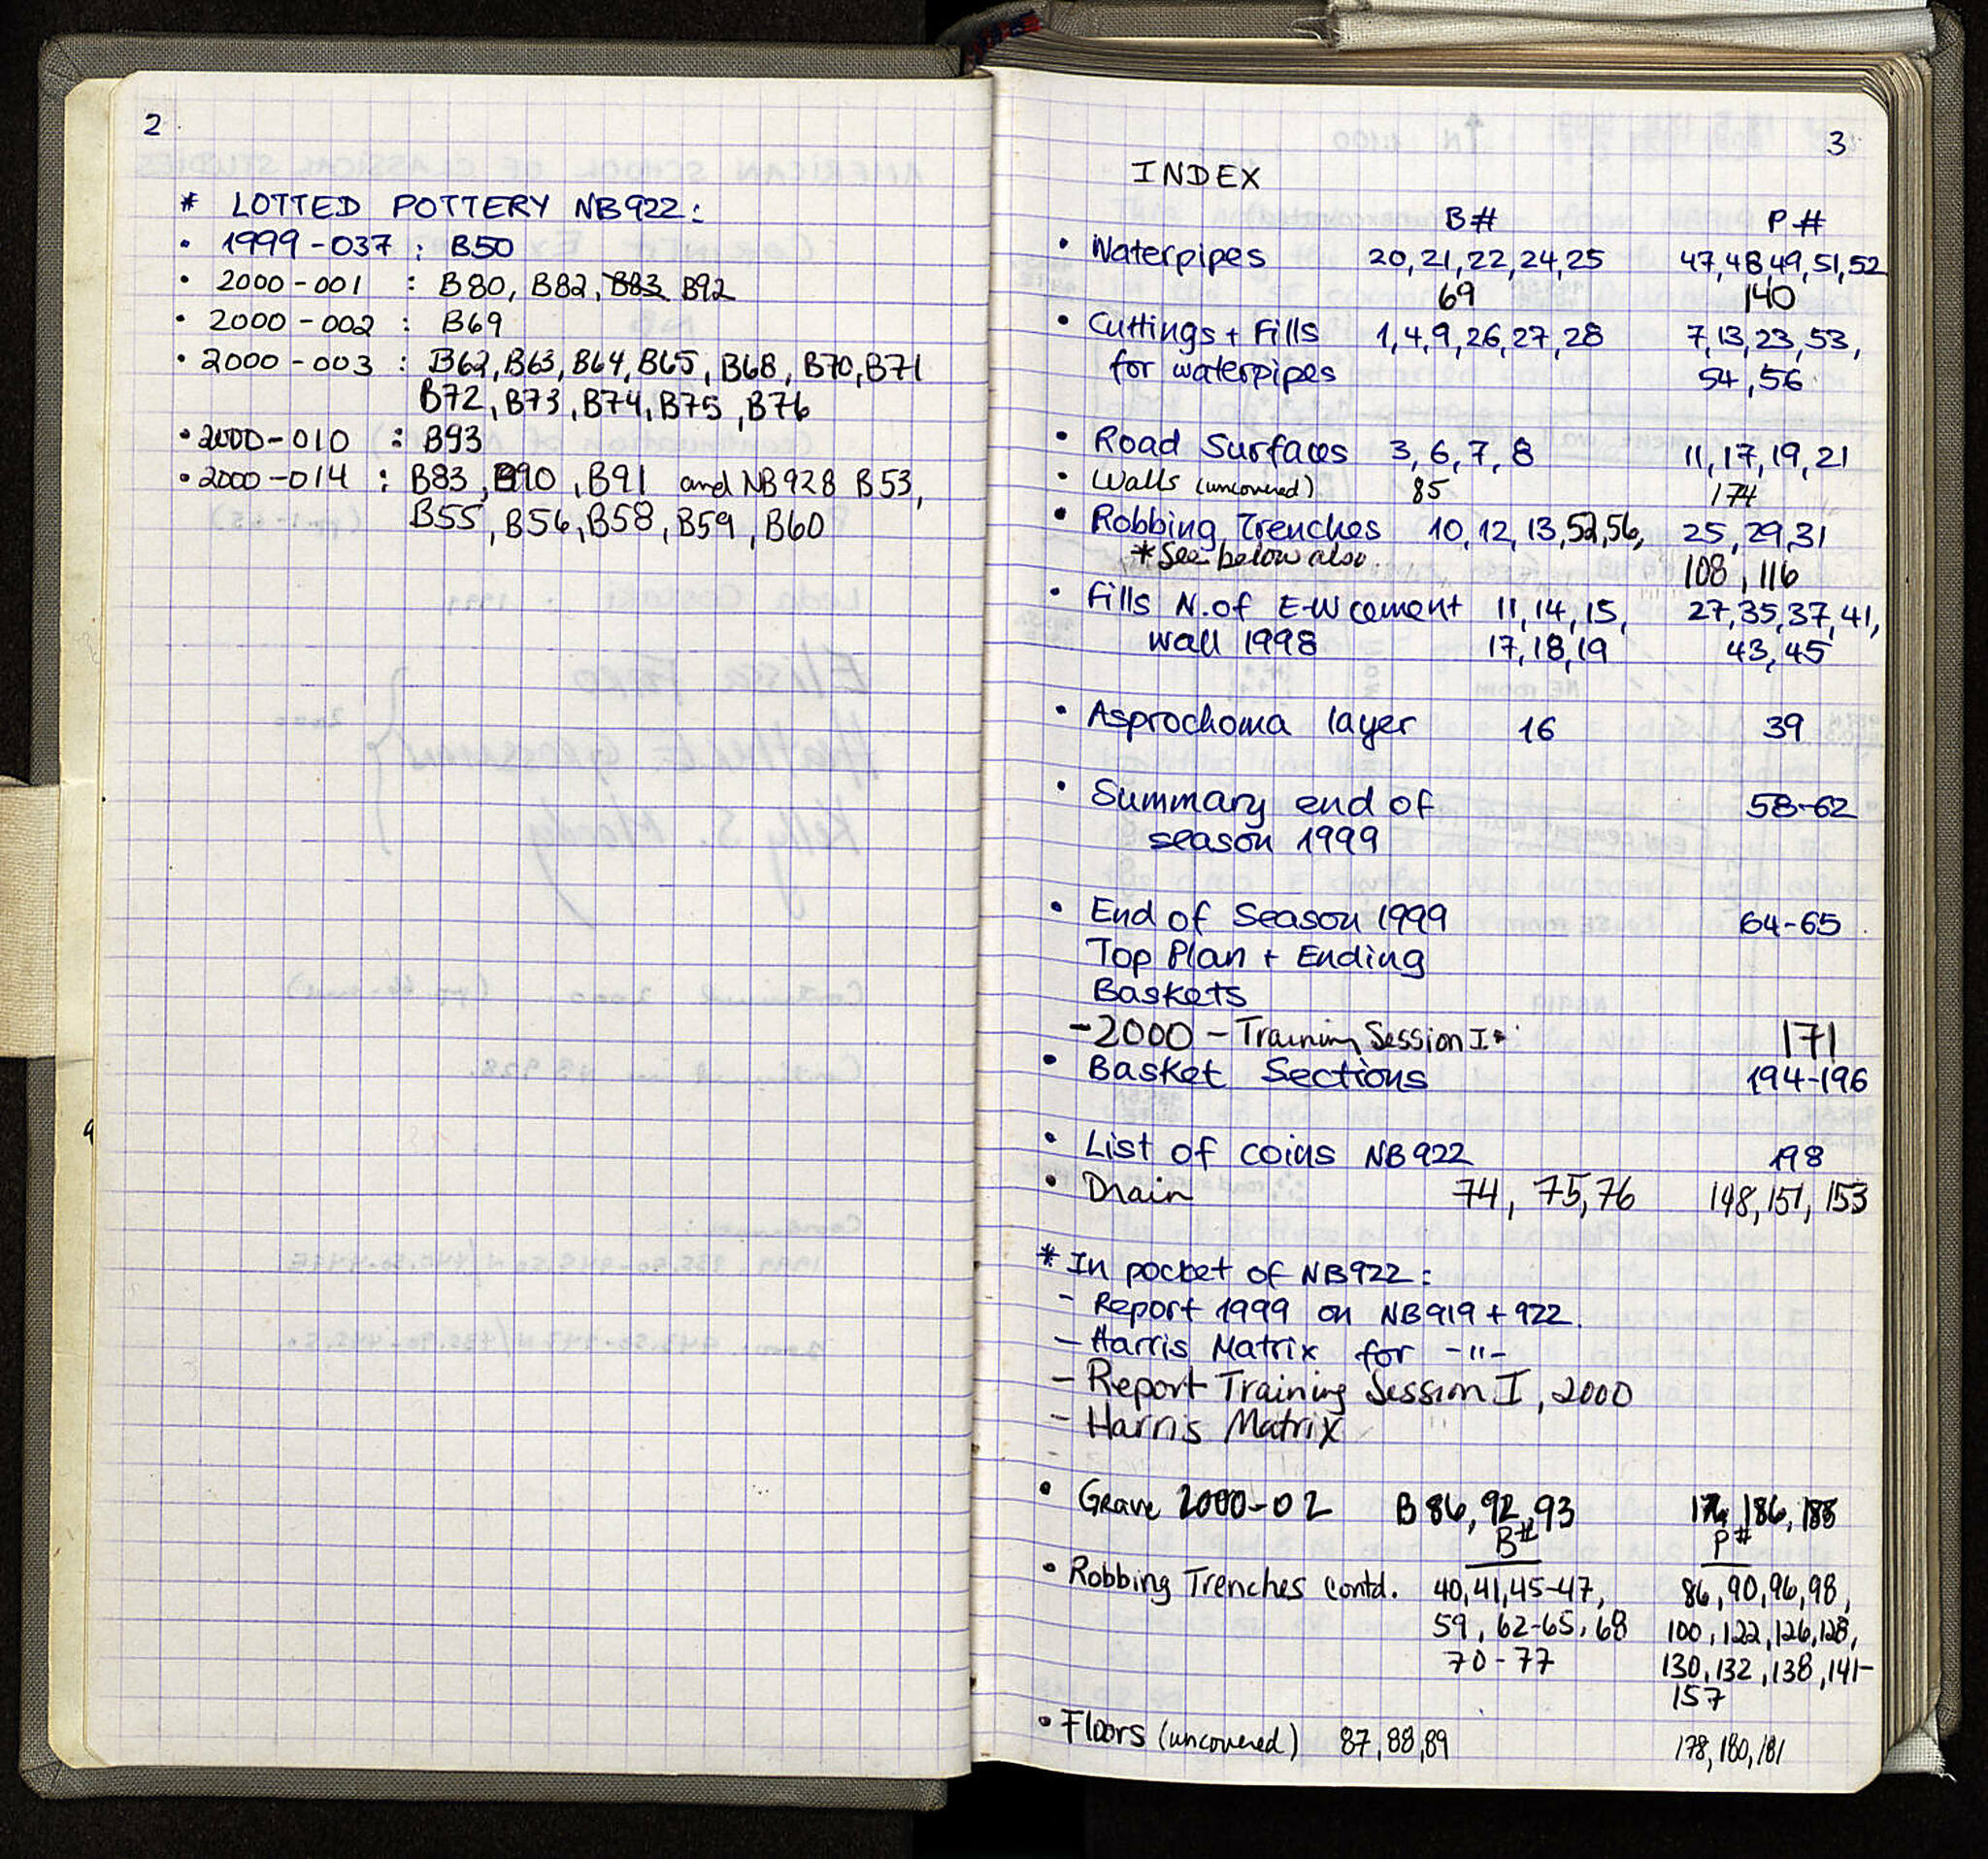 2
* LOTTED POTTERY NB922:
• 1999-037 : B50
• 2000-001 : B80, B82, B83 B92
• 2000-002 : B69
• 2000-003 : B62, B63, B64, B65, B68, B70, B71
B72, B73, B74, B75, B76
• 2000-010 : B93
• 2000-014 : B83, B90, B91 and NB928 B53,
B55, B56, B58, B59, B60
3
INDEX
B# P#
• Waterpipes 20,21,22,24,25 47,48,49,51,52
69 140
• Cuttings + Fills 1,4,9,26,27,28 7,13,23,53,
for waterpipes 54,56
• Road Surfaces 3,6,7,8 11,17,19,21
• Walls (uncovered) 85 174
• Robbing Trenches 10,12,13,52,56, 25,29,31
*See below also. 108, 116
• Fills N. of E-W cement 11,14,15, 27,35,37,41,
wall 1998 17,18,19 43,45
• Asprochoma layer 16 39
• Summary end of 58-62
season 1999
• End of Season 1999 64-65
Top Plan + Ending
Baskets
-2000 - Training Session I 171
• Basket Sections 194-196
• List of coins NB922 198
• Drain 74, 75, 76 148, 151, 153
* In pocket of NB922:
- Report 1999 on NB919 + 922.
- Harris Matrix for -"-
- Report Training Session I, 2000
- Harris Matrix
-
• Grave 2000-02 B 86, 92, 93 186, 188
B# P#
• Robbing Trenches contd. 40,41,45-47, 86,90,96,98,
59, 62-65, 68 100,122,126,128,
70-77 130,132,138,141-
157
• Floors (uncovered) 87,88,89 178,180,181